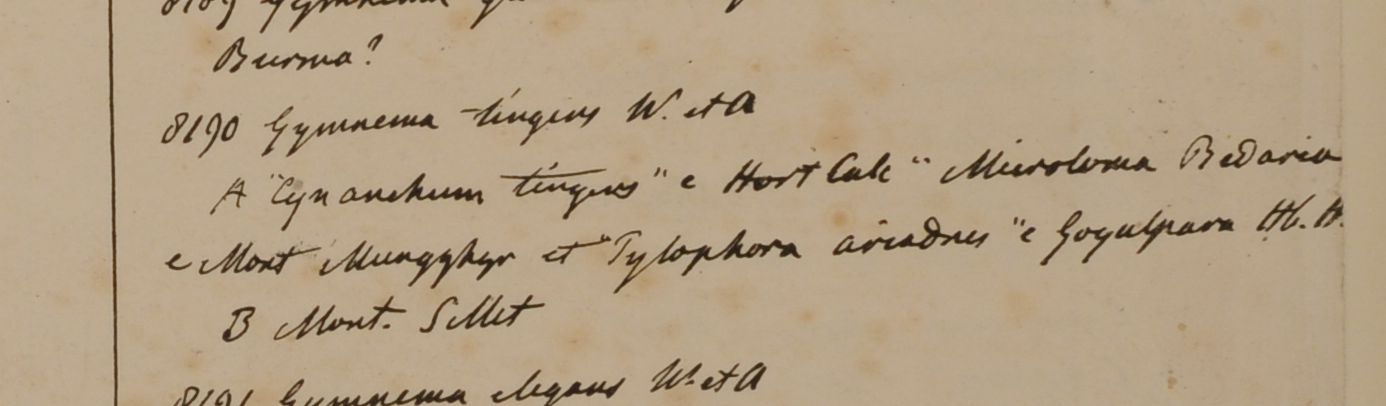 8189 Gymnema
Burma?
8190 Gymnema tingens W. et A
A "Cynanchum tingens" e Hort Calc " Microloma Bedaria
e Mont Mungghyr et "Tylophora ariadnes" e Goyalpara Hb. H.
B Mont. Sillet
8191 Gymnema elegans W. et A